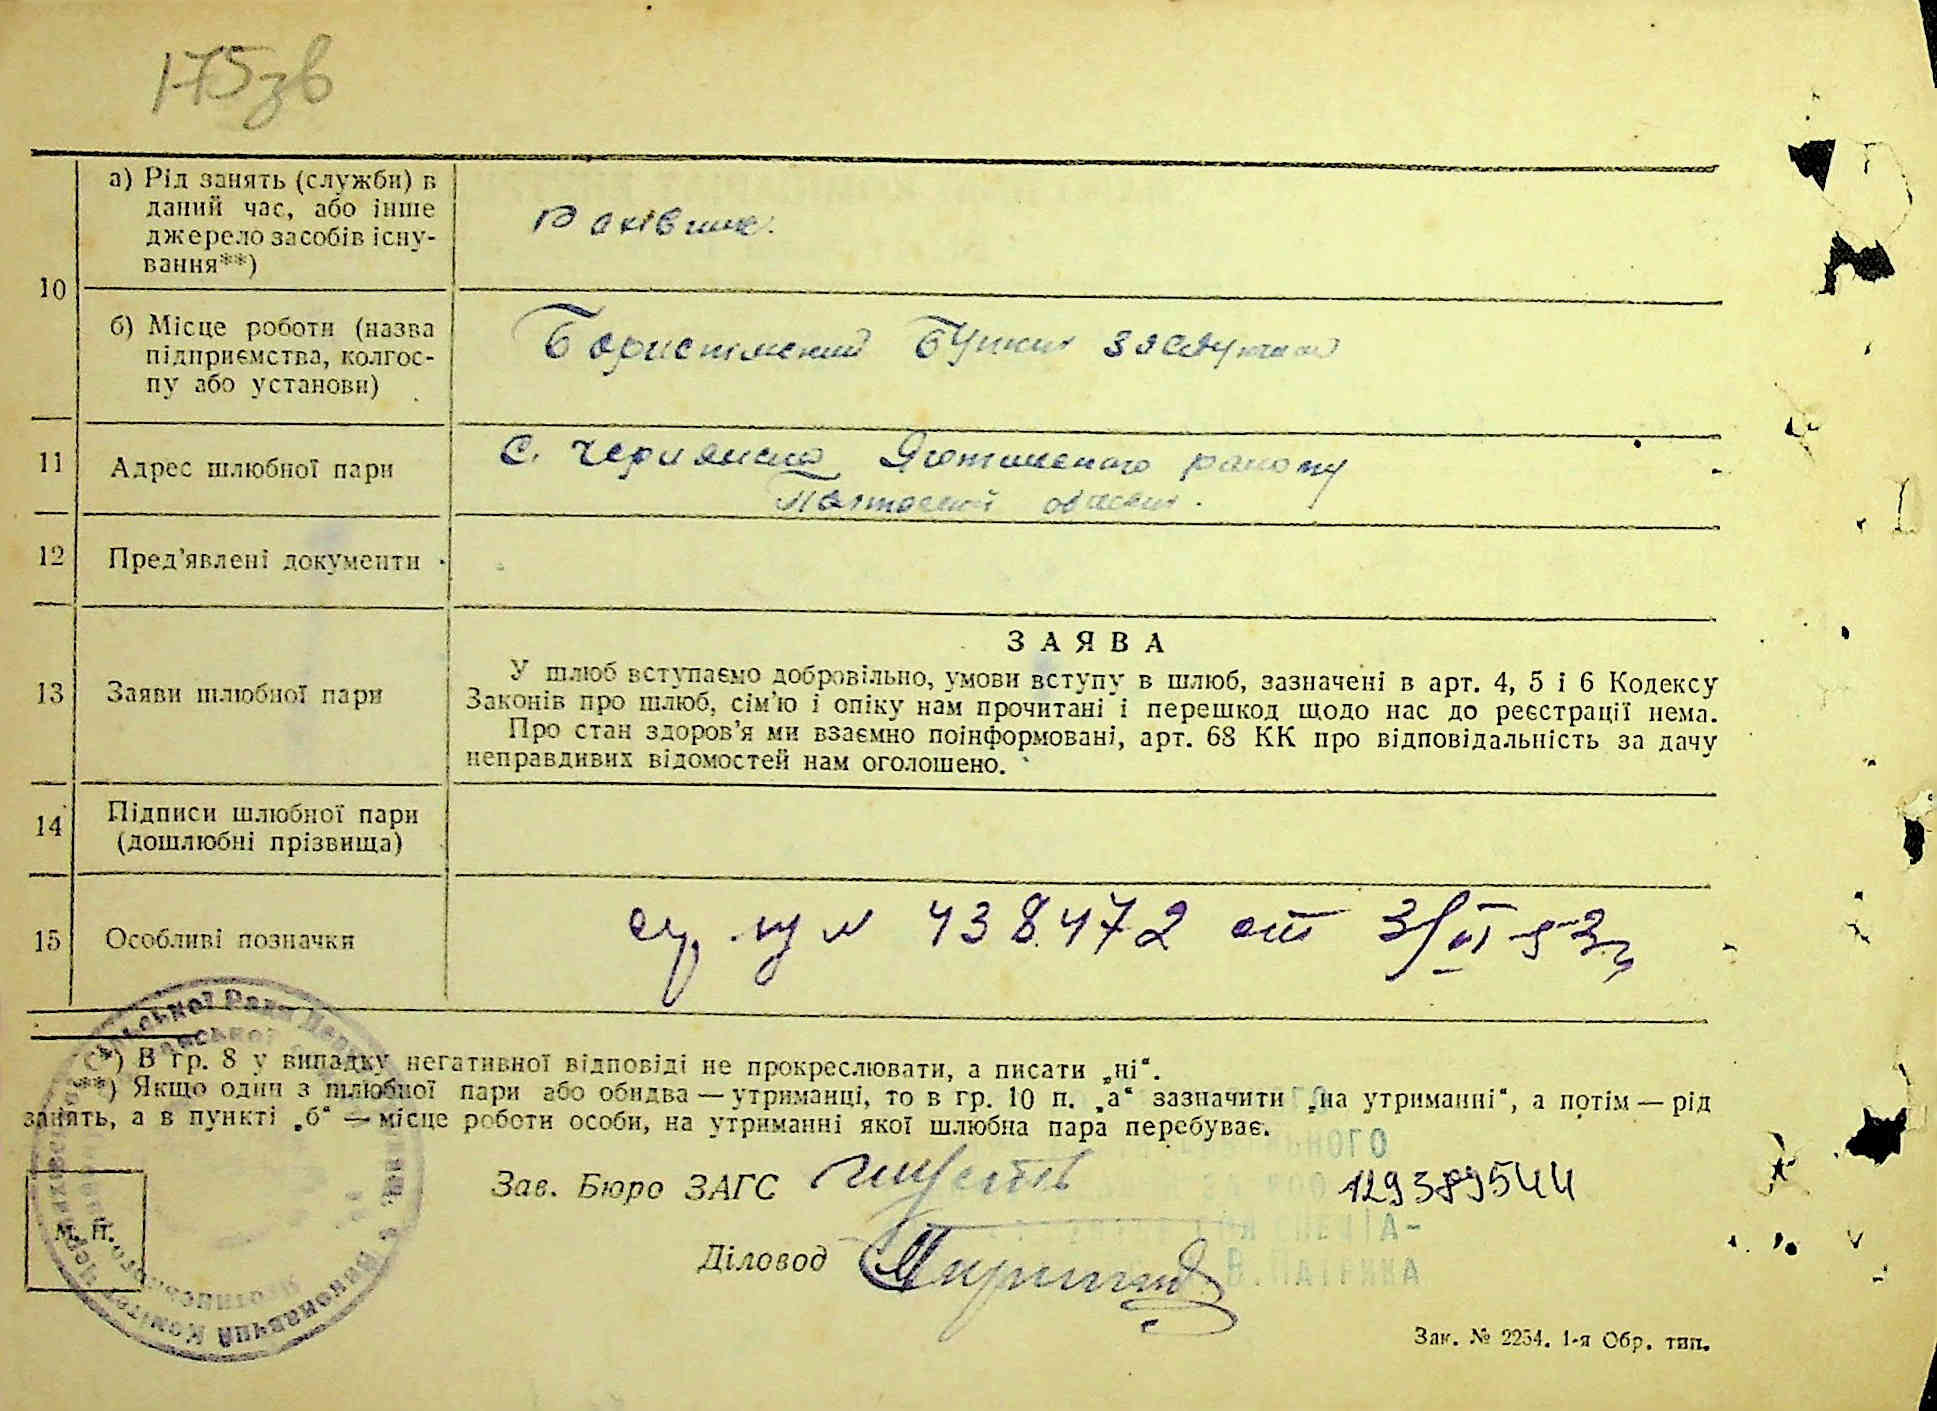 175зв
а) Рід занять (служби) в
даний час, або інше
джерело засобів існу-
вання**)
10
б) Місце роботи (назва
підприємства, колгос-
пу або установи)
11
Адрес шлюбної пари
с. Черняхівка Яготинского району
Полтавської области.
12
Пред'явлені документи
13
Заяви шлюбної пари
ЗАЯВА
У шлюб вступаємо добровільно, умови вступу в шлюб, зазначені в арт. 4, 5 і 6 Кодексу
Законів про шлюб, сім'ю і опіку нам прочитані і перешкод щодо нас до реєстрації нема.
Про стан здоров'я ми взаємно поінформовані, арт. 68 КК про відповідальність за дачу
неправдивих відомостей нам оголошено.
14
Підписи шлюбної пари
(дошлюбні прізвища)
15
Особливі позначки
438472 от 3/VI-53г
*) В гр. 8 у випадку негативної відповіді не прокреслювати, а писати „ні“.
**) Якщо один з шлюбної пари або обидва — утриманці, то в гр. 10 п. „а“ зазначити „на утриманні“, а потім — рід
занять, а в пункті „б“ — місце роботи особи, на утриманні якої шлюбна пара перебуває.
Зав. Бюро ЗАГС
129389544
М. П.
Діловод
Зак. № 2254. 1-я Обр. тип.